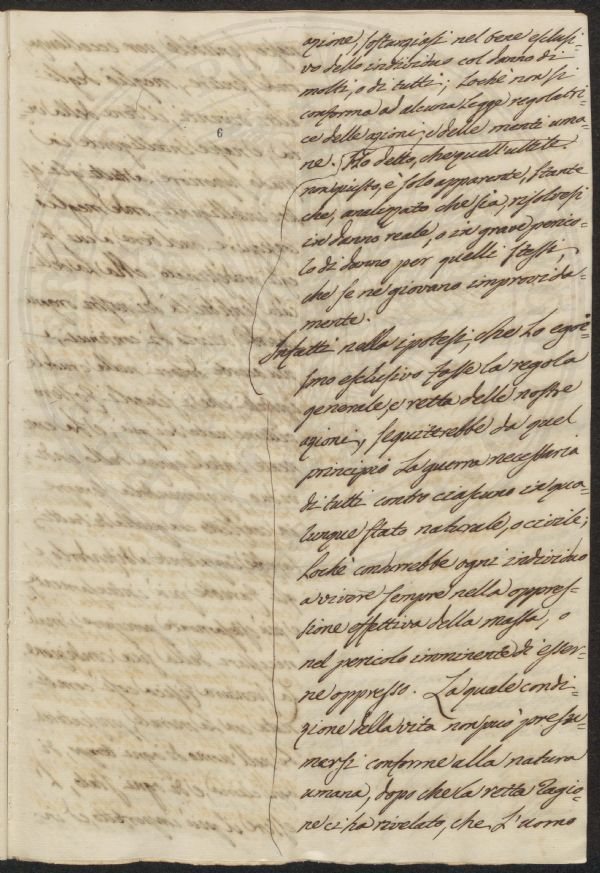 6
azione, sostengasi nel bene esclusi-
vo dello individuo col danno di
molti, o di tutti; Lochè non si
conforma ad alcuna Legge regolatri-
ce delle azioni, e delle mente uma-
ne. Ho detto, che quell'utile
non giusto, è solo apparente, stante
che, analizzato che sia, risolvesi
in danno reale, o in grave perico-
lo di danno per quelli stessi,
che se ne giovano improvida-
mente.
Infatti nella ipotesi, che Lo egoi-
smo esclusivo fosse la regola
generale, e retta delle nostre
azioni, seguiterebbe da quel
principio La guerra necessaria
di tutti contro ciascuno in qua-
lunque stato naturale, o civile;
Lochè condurrebbe ogni individuo
a vivere sempre nella oppres-
sione effettiva della massa, o
nel pericolo imminente di esser-
ne oppresso. La quale condi-
zione della vita non può presu-
marsi conforme alla natura
umana, dopo che la retta ragio-
ne ci ha rivelato, che L'uomo